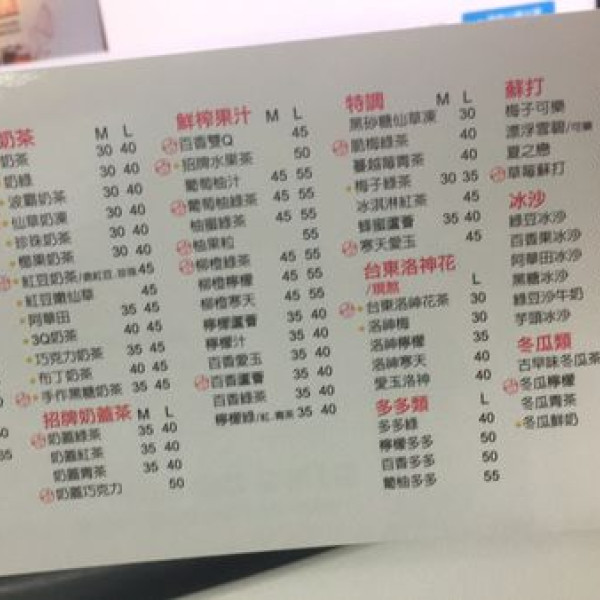 奶茶 M L
奶茶 30 40
奶綠 30 40
波霸奶茶 30 40
仙草奶凍 30 40
珍珠奶茶 30 40
椰果奶茶 30 40
紅豆奶茶 45
紅豆嫩仙草 45
阿華田 35 45
3Q奶茶 40 45
巧克力奶茶 35 45
布丁奶茶 40 45
手作黑糖奶茶 35 45
招牌奶蓋茶 M L
奶蓋綠茶 35 40
奶蓋紅茶 35 40
奶蓋青茶 35 40
奶蓋巧克力 50
鮮榨果汁 M L
百香雙Q 45
招牌水果茶 50
葡萄柚汁 45 55
葡萄柚綠茶 45 55
柚蜜綠茶 45 55
柚果粒 55
柳橙綠茶 45 55
柳橙檸檬 45 55
柳橙寒天 45 55
檸檬蘆薈 35 40
檸檬汁 35 40
百香愛玉 35 40
百香蘆薈 35 40
百香綠茶 35 40
檸檬綠/紅.青茶 35 40
特調 M L
黑砂糖仙草凍 30
脆梅綠茶 40
蔓越莓青茶 40
梅子綠茶 30 35
冰淇淋紅茶 45
蜂蜜蘆薈 35 40
寒天愛玉 45
台東洛神花
/現熬 L
台東洛神花茶 30
洛神梅 30
洛神檸檬 35
洛神寒天 40
愛玉洛神 40
多多類 L
多多綠 40
檸檬多多 50
百香多多 50
葡柚多多 55
蘇打
梅子可樂
漂浮雪碧/可樂
夏之戀
草莓蘇打
冰沙
綠豆冰沙
百香果冰沙
阿華田冰沙
黑糖冰沙
綠豆沙牛奶
芋頭冰沙
冬瓜類
古早味冬瓜茶
冬瓜檸檬
冬瓜青茶
冬瓜鮮奶